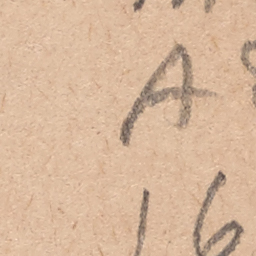 A
16